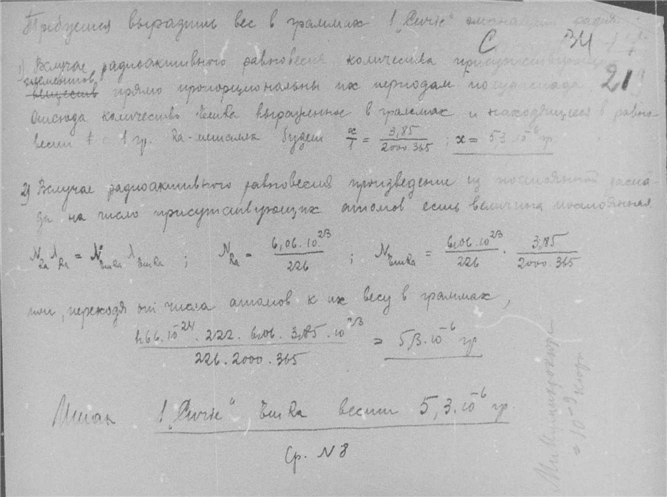 Требуется выразить вес в граммах 1 „Curie" эманации радия.
С 34
1) В случае радиоактивного равновесия количества присутствующих
элементов 213
веществ прямо пропорциональны их периодам полураспада
Отсюда количество EmRa выраженное в граммах и находящееся в равно-
весии с 1 гр. Ra-металла будет x/1 = 3,85/2000.365 ; x = 5,3.10⁻⁶ гр
2) В случае радиоактивного равновесия произведение из постоянной распа-
да на число присутствующих атомов есть величина постоянная
N_Ra λ_Ra = N_EmRa λ_EmRa ; N_Ra = 6,06.10²³/226 ; N_EmRa = 6,06.10²³/226 . 3,85/2000.365
или, переходя от числа атомов к их весу в граммах,
1,66.10⁻²⁴.222.6,06.3,85.10²³/226.2000.365 = 5,3.10⁻⁶ гр
Итак 1 „Curie" EmRa весит 5,3.10⁻⁶ гр
Ср. N 8
= 10⁻⁹ кюри